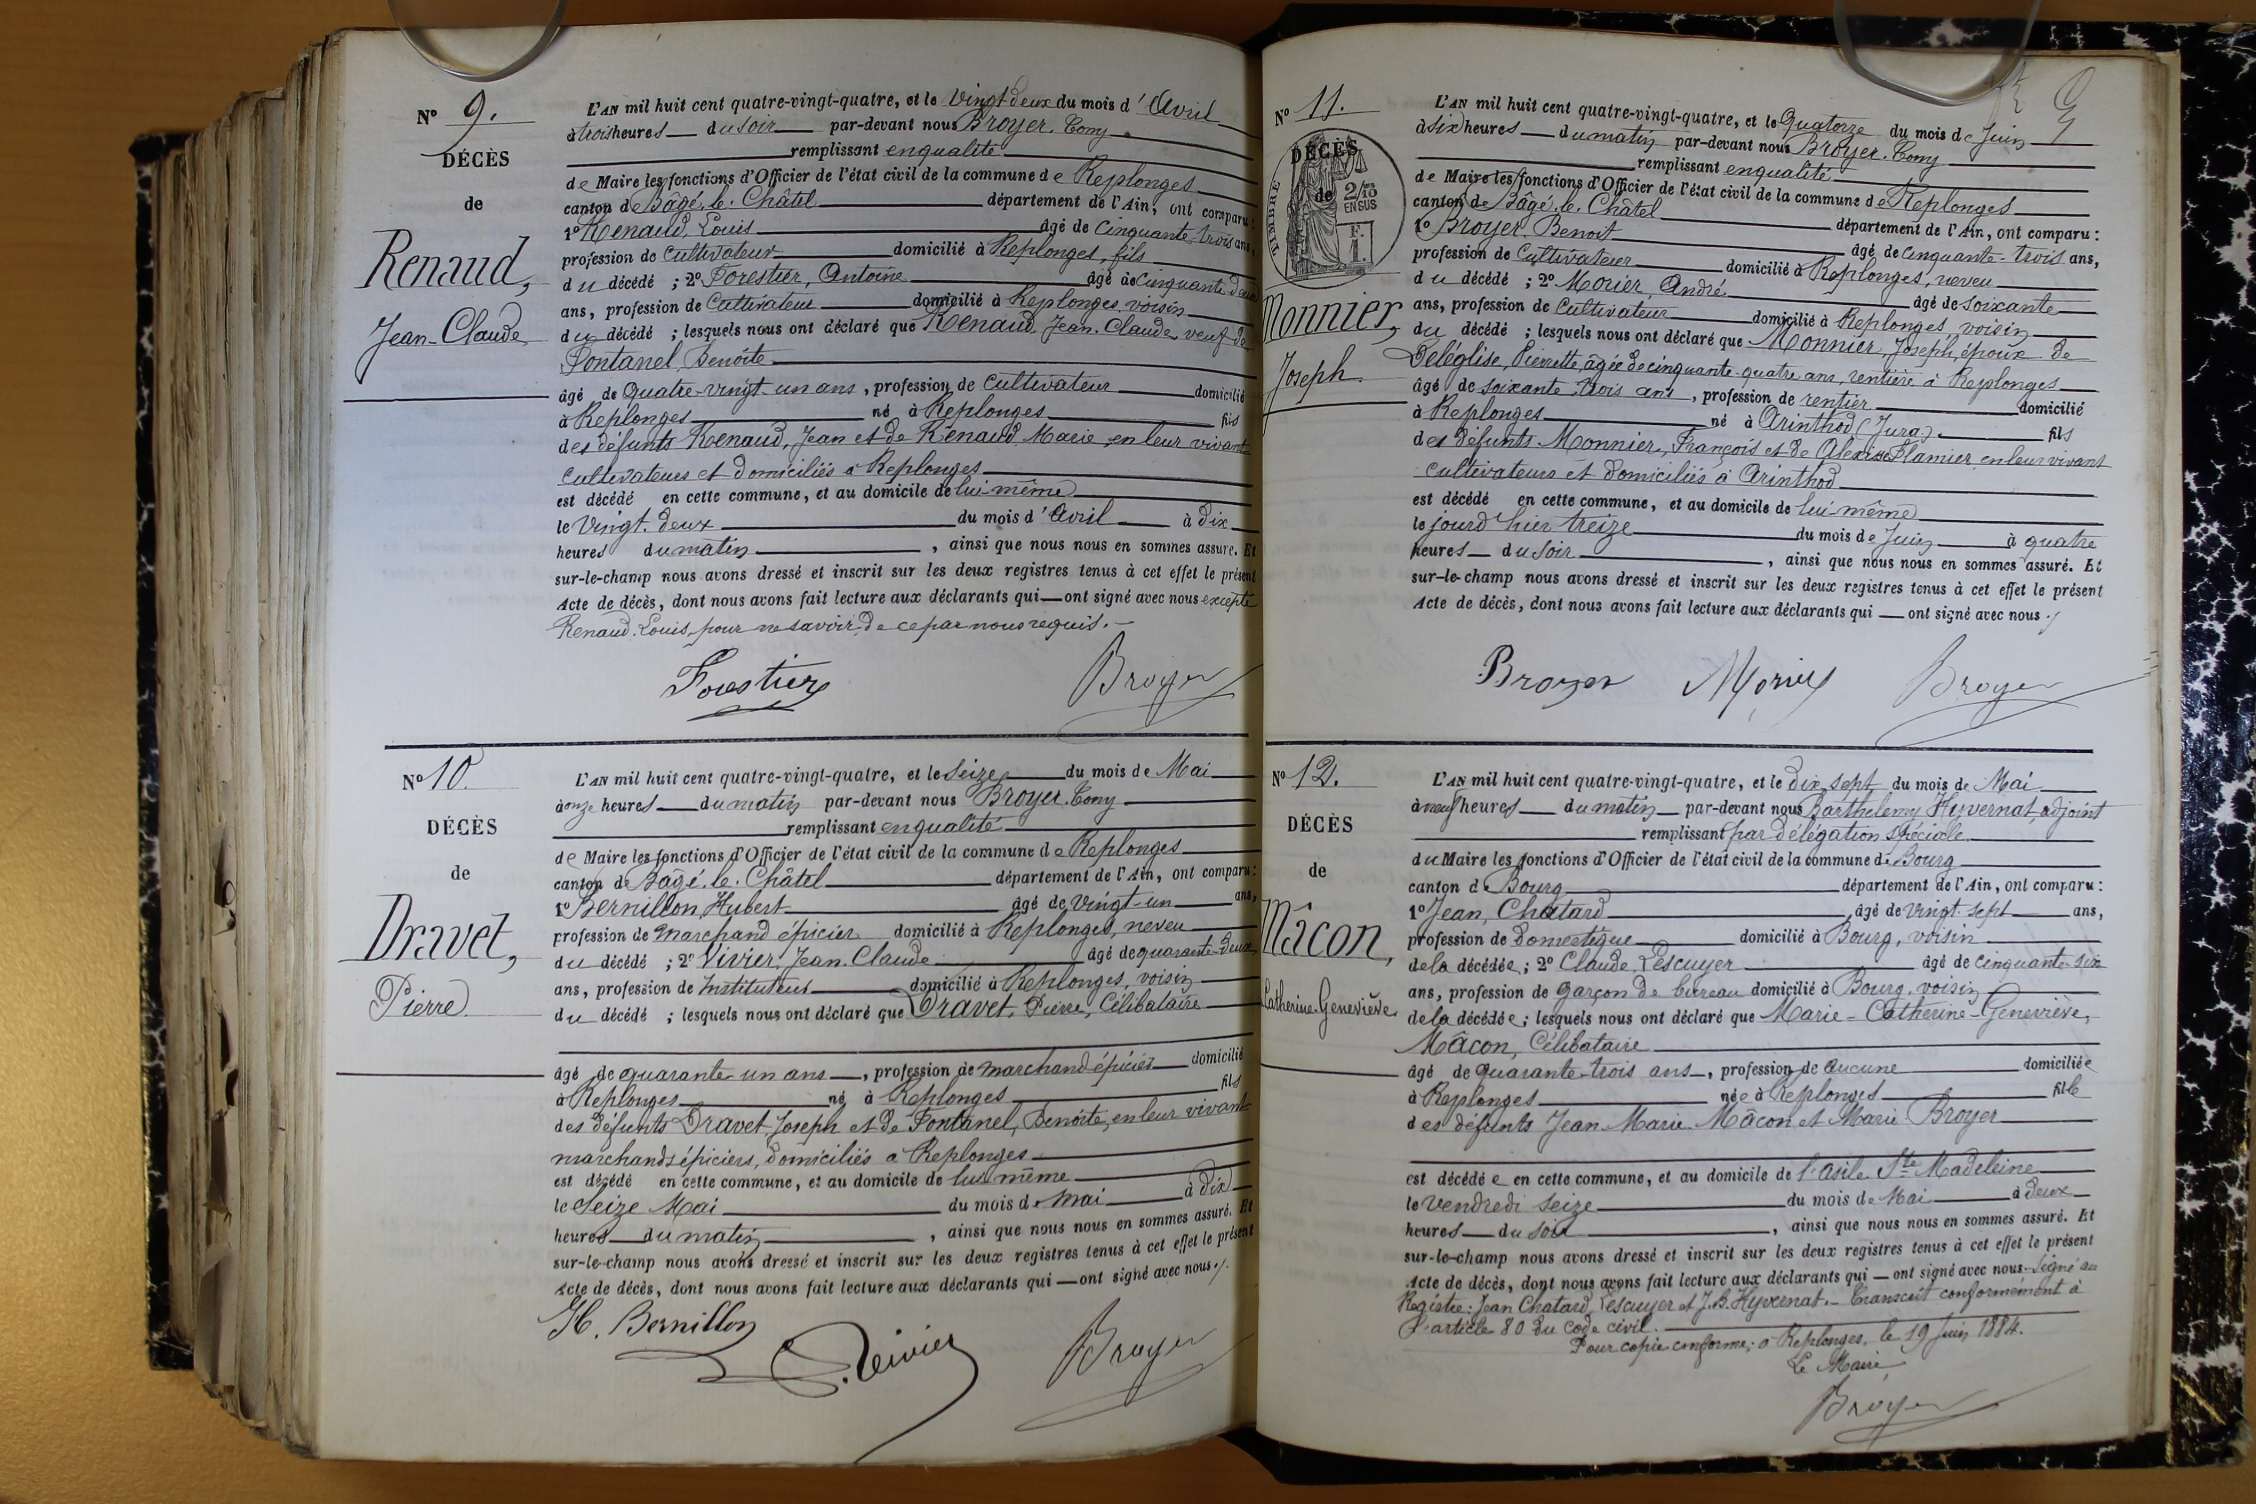 Nº 9.
DÉCÈS
de
Renaud,
Jean-Claude
L'AN mil huit cent quatre-vingt-quatre, et le Vingt deux du mois d'Avril
à trois heures du soir par-devant nous Broyer, Tony
remplissant en qualité
de Maire les fonctions d'Officier de l'état civil de la commune de Replonges
canton de Bâgé-le-Châtel département de l'Ain, ont comparu :
1º Renaud, Louis âgé de Cinquante-trois ans,
profession de Cultivateur domicilié à Replonges, fils
du décédé ; 2º Forestier, Antoine âgé de Cinquante deux
ans, profession de Cultivateur domicilié à Replonges, voisin
du décédé ; lesquels nous ont déclaré que Renaud, Jean-Claude, veuf de
Fontanel, Benoîte
âgé de Quatre-vingt-un ans, profession de Cultivateur domicilié
à Replonges né à Replonges fils
des défunts Renaud, Jean et de Renaud Marie, en leur vivant
cultivateurs et domiciliés à Replonges
est décédé en cette commune, et au domicile de lui-même
le Vingt-deux du mois d'Avril à dix
heures du matin, ainsi que nous nous en sommes assuré. Et
sur-le-champ nous avons dressé et inscrit sur les deux registres tenus à cet effet le présent
Acte de décès, dont nous avons fait lecture aux déclarants qui ont signé avec nous excepté
Renaud, Louis, pour ne savoir, de ce par nous requis.
Forestier Broyer
Nº 10.
DÉCÈS
de
Dravet,
Pierre
L'AN mil huit cent quatre-vingt-quatre, et le Seize du mois de Mai
à onze heures du matin par-devant nous Broyer, Tony
remplissant en qualité
de Maire les fonctions d'Officier de l'état civil de la commune de Replonges
canton de Bâgé-le-Châtel département de l'Ain, ont comparu :
1º Bernillon Hubert âgé de Vingt-un ans,
profession de marchand épicier domicilié à Replonges, neveu
du décédé ; 2º Vivier, Jean-Claude âgé de quarante-deux
ans, profession de Instituteur domicilié à Replonges, voisin
du décédé ; lesquels nous ont déclaré que Dravet, Pierre, Célibataire
âgé de quarante-un ans, profession de marchand épicier domicilié
à Replonges né à Replonges fils
des défunts Dravet Joseph et de Fontanel, Benoîte, en leur vivant
marchands épiciers, domiciliés à Replonges
est décédé en cette commune, et au domicile de lui-même
le Seize Mai du mois de Mai à dix
heures du matin, ainsi que nous nous en sommes assuré. Et
sur-le-champ nous avons dressé et inscrit sur les deux registres tenus à cet effet le présent
Acte de décès, dont nous avons fait lecture aux déclarants qui ont signé avec nous./.
H. Bernillon
Vivier Broyer
Nº 11.
TIMBRE
2/10 EN SUS
F. 1.
DÉCÈS
de
Monnier,
Joseph
L'AN mil huit cent quatre-vingt-quatre, et le Quatorze du mois de Juin
à six heures du matin par-devant nous Broyer, Tony
remplissant en qualité
de Maire les fonctions d'Officier de l'état civil de la commune de Replonges
canton de Bâgé-le-Châtel département de l'Ain, ont comparu :
1º Broyer, Benoit âgé de Cinquante-trois ans,
profession de Cultivateur domicilié à Replonges, neveu
du décédé ; 2º Morier, André âgé de Soixante
ans, profession de Cultivateur domicilié à Replonges, voisin
du décédé ; lesquels nous ont déclaré que Monnier, Joseph, époux de
Deléglise, Pierrette, âgée de cinquante-quatre ans, rentière à Replonges
âgé de soixante-trois ans, profession de rentier domicilié
à Replonges né à Arinthod (Jura) fils
des défunts Monnier, François et de Alexise Flamier, en leur vivant
cultivateurs et domiciliés à Arinthod
est décédé en cette commune, et au domicile de lui-même
le jourd'hier treize du mois de Juin à quatre
heures du soir, ainsi que nous nous en sommes assuré. Et
sur-le-champ nous avons dressé et inscrit sur les deux registres tenus à cet effet le présent
Acte de décès, dont nous avons fait lecture aux déclarants qui ont signé avec nous./
Broyer Morier Broyer
Nº 12.
DÉCÈS
de
Mâcon,
Catherine-Geneviève
L'AN mil huit cent quatre-vingt-quatre, et le dix sept du mois de Mai
à neuf heures du matin par-devant nous Barthelemy Hyvernat, adjoint
remplissant par délégation spéciale
du Maire les fonctions d'Officier de l'état civil de la commune de Bourg
canton de Bourg département de l'Ain, ont comparu :
1º Jean, Chatard âgé de Vingt-sept ans,
profession de Domestique domicilié à Bourg, voisin
de la décédée ; 2º Claude, Lescuyer âgé de Cinquante-six
ans, profession de garçon de bureau domicilié à Bourg, voisin
de la décédée ; lesquels nous ont déclaré que Marie-Catherine-Geneviève,
Mâcon, Célibataire
âgé de quarante-trois ans, profession de aucune domiciliée
à Replonges née à Replonges fille
des défunts Jean Marie Mâcon et Marie Broyer
est décédée en cette commune, et au domicile de l'asile Ste Madeleine
le Vendredi Seize du mois de Mai à deux
heures du soir, ainsi que nous nous en sommes assuré. Et
sur-le-champ nous avons dressé et inscrit sur les deux registres tenus à cet effet le présent
Acte de décès, dont nous avons fait lecture aux déclarants qui ont signé avec nous. Signé au
Registre : Jean Chatard, Lescuyer et J. B. Hyvernat. Transcrit conformément à
l'article 80 du code civil.
Pour copie conforme, à Replonges, le 19 Juin 1884.
Le Maire,
Broyer